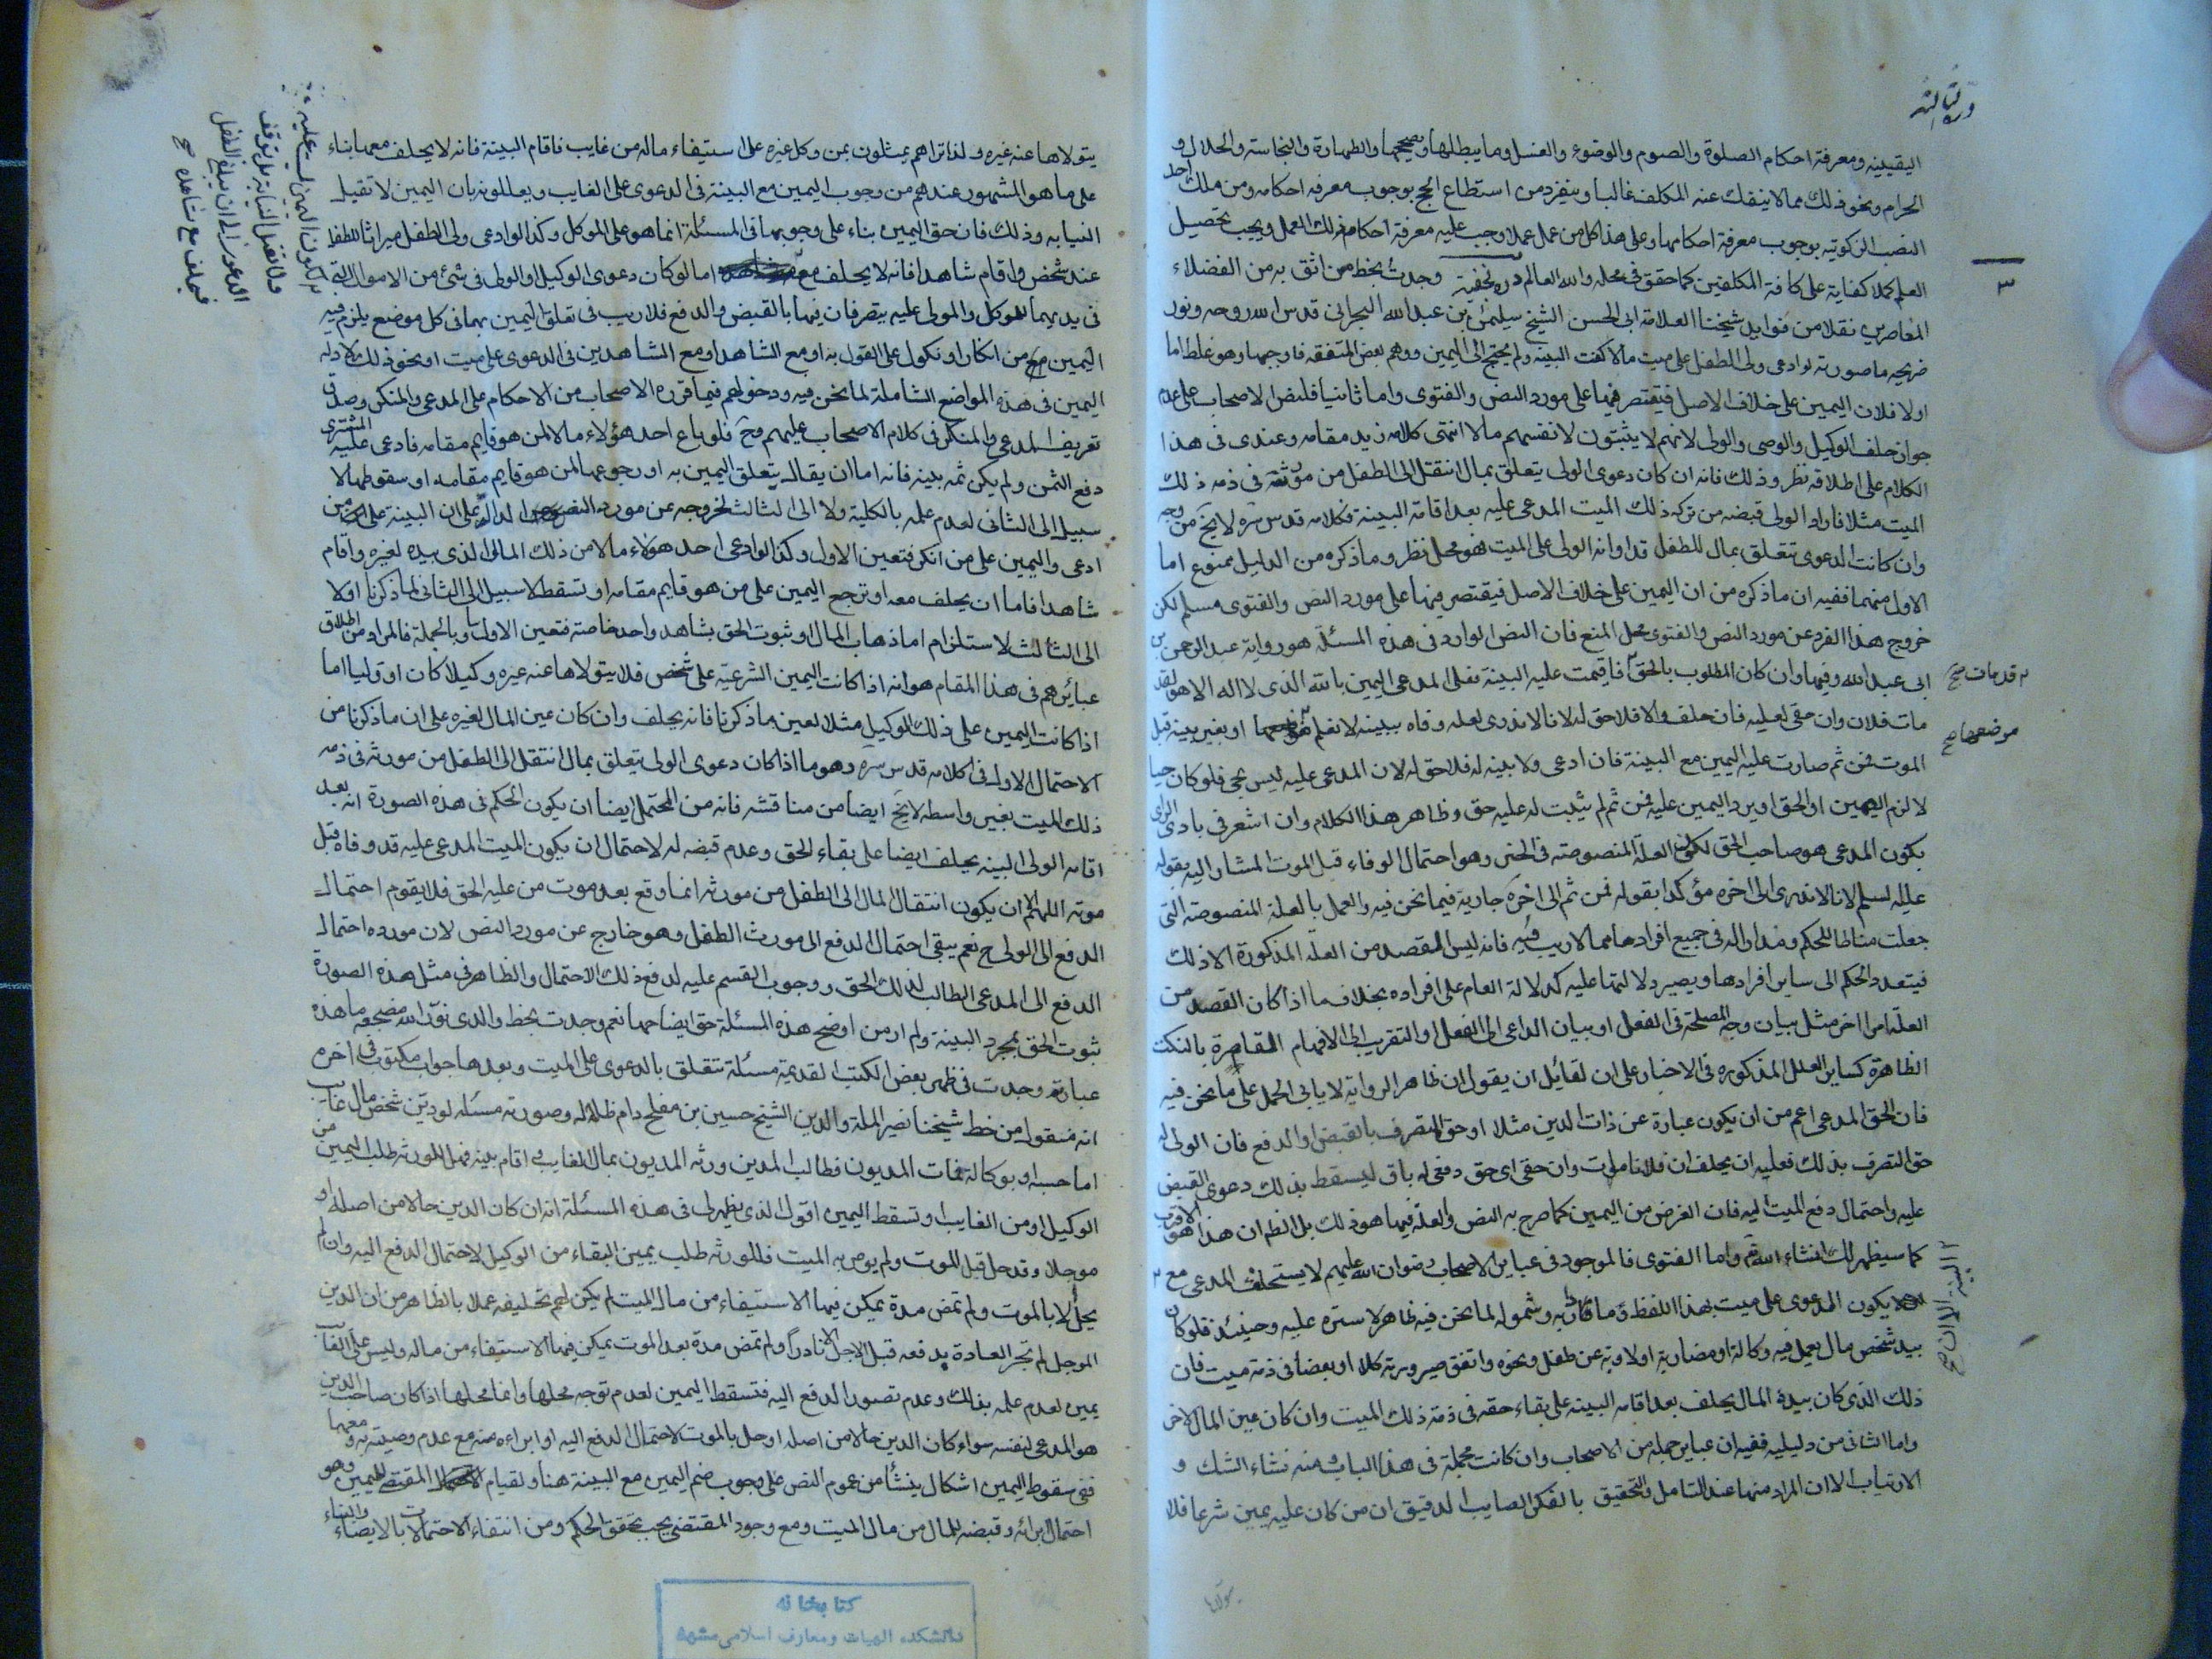 اليقينيه ومعرفة احكام الصلوة والصوم والوضوء والغسل وما يبطلها ويصححها والطهارة والنجاسة والحلال و
الحرام ونحو ذلك مما لا ينفك عنه المكلف غالبا وينفرد من استطاع الحج بوجوب معرفه احكامه ومن ملك احد
النصب الزكوتيه بوجوب معرفة احكامها وعلى هذا كل من عمل عملا وجب عليه معرفة احكام ذلك العمل ويجب تحصيل
العلم كملا كفاية على كافة المكلفين كما حقق في محله والله العالم وجدت بخط من اثق به من الفضلاء
المعاصرين نقلا من فوايد شيخنا العلامة ابى الحسن الشيخ سليمن بن عبد الله البحرانى قدس الله روحه ونور
ضريحه ما صورته لو ادعى ولى الطفل على ميت مالا كفت البينه ولم يحتج الى اليمين ووهم بعض المتفقه فاوجبها وهو غلط اما
اولا فلان اليمين على خلاف الاصل فيقتصر فيها على مورد النص والفتوى واما ثانيا فلنص الاصحاب على عدم
جواز حلف الوكيل والوصى والولى لانهم لا يثبتون لانفسهم مالا انتهى كلامه زيد مقامه وعندى فى هذا
الكلام على اطلاقه نظر وذلك فانه ان كان دعوى الولى يتعلق بمال انتقل الى الطفل من مورثه فى ذمه ذلك
الميت مثلا فاراد الولى قبضه من تركه ذلك الميت المدعى عليه بعد اقامة البينة فكلامه قدس سره لا يخ من وجه
وان كانت الدعوى تتعلق بمال للطفل قد اوانه الولى على الميت فهو محل نظر وما ذكره من الدليل ممنوع اما
الاول منهما ففيه ان ما ذكره من ان اليمين على خلاف الاصل فيقتصر فيها على مورد النص والفتوى مسلم لكن
خروج هذا الفرد عن مورد النص والفتوى محل المنع فان النص الوارد فى هذه المسئلة هو رواية عبد الرحمن بن
ابى عبد الله وفيها وان كان المطلوب بالحق فاقيمت عليه البينة فعلى المدعى اليمين بالله الذى لا اله الا هو لقد
قد مات صح
مات فلان وان حقى لعليه فان حلف والا فلا حق له لانا لا ندرى لعله وفاه ببينه لا نعلم او بغير بينه قبل
موضعها صح
الموت فمن ثم صارت عليه اليمين مع البينة فان ادعى ولا بينه له فلا حق له لان المدعى عليه ليس بحى فلو كان حيا
لالزم اليمين او الحق او يرد اليمين عليه فمن ثم لم يثبت له عليه حق وظاهر هذا الكلام وان اشعر فى بادى الراى
بكون المدعى هو صاحب الحق لكن العلة المنصوصة فى الخبر وهو احتمال الوفاء قبل الموت المشار اليه بقوله
عليه السلم لانا لا ندرى الى اخره مؤكدا بقوله فمن ثم الى اخره جارية فيما نحن فيه والعمل بالعلة المنصوصه التى
جعلت مناطا للحكم ومدار له فى جميع افرادها مما لا ريب فيه فانه ليس المقصد من العلة المذكورة الا ذلك
فيتعدد الحكم الى ساير افرادها ويصير دلالتها عليه كدلالة العام على افراده بخلاف ما اذا كان القصد من
العلة امرا اخر مثل بيان وجه المصلحة فى الفعل او بيان الداعى الى الفعل او التقريب الى الافهام القاصرة بالنكت
الظاهرة كساير العلل المذكوره فى الاخبار على ان لقائل ان يقول ان ظاهر الرواية لا يابى الحمل على ما نحن فيه
فان الحق المدعى اعم من ان يكون عبارة عن ذات الدين مثلا او حق التصرف بالقبض والدفع فان الولى له
حق التصرف بذلك فعليه ان يحلف ان فلانا مات وان حقى اى حق دفعى له باق ليسقط بذلك دعوى القبض
عليه واحتمال دفع الميت اليه فان الغرض من اليمين كما صرح به النص والعلة فيها هو ذلك بل الظاهر ان هذا هو الاقرب
كما سيظهر لك انشاء الله تع واما الفتوى فالموجود فى عباير الاصحاب رضوان الله عليهم لا يستحلف المدعى مع
البينة الا ان صح
يكون الدعوى على ميت بهذا اللفظ وما قاربه وشموله لما نحن فيه ظاهر لا ستره عليه وحينئذ فلو كان
بيد شخص مال يعمل فيه وكالة او مضاربة او لاوية عن طفل ونحوه واتفق صيرورته كلا او بعضا فى ذمة ميت فان
ذلك الذى كان بيده المال يحلف بعد اقامه البينه على بقاء حقه فى ذمة ذلك الميت وان كان عين المال لاخر
واما الثانى من دليليه ففيه ان عباير جمله من الاصحاب وان كانت مجملة فى هذا الباب ومنه نشاء الشك و
الارتياب الا ان المراد منها عند التامل والتحقيق بالفكر الصايب الدقيق ان من كان عليه يمين شرعا فلا
يتولاها عنه غيره ولذا تراهم يمثلون بمن وكل غيره على استيفاء ماله من غايب فاقام البينة فانه لا يحلف معها بناء
على ما هو المشهور عندهم من وجوب اليمين مع البينة فى الدعوى على الغايب ويعللونه بان اليمين لا تقبل
النيابه وذلك فان حق اليمين بناء على وجوبها فى المسئلة انما هو على الموكل وكذا لو ادعى ولى الطفل ميراثا للطفل
عند شخص واقام شاهدا فانه لا يحلف معه اما لو كان دعوى الوكيل او الولى فى شئ من الاموال التى
فى يديهما للموكل والمولى عليه يتصرفان فيها بالقبض والدفع فلا ريب فى تعلق اليمين بهما فى كل موضع يلزم فيه
اليمين من انكار او نكول على القول به او مع الشاهد او مع المشاهدين فى الدعوى على ميت او نحو ذلك لادله
اليمين فى هذه المواضع الشاملة لما نحن فيه ودخولهم فيما قرره الاصحاب من الاحكام على المدعى والمنكر وصدق
تعريف المدعى والمنكر فى كلام الاصحاب عليهم وح فلو باع احد هؤلاء مالا لمن هو قايم مقامه فادعى عليه المشترى
دفع الثمن ولم يكن ثمه بينه فانه اما ان يقال يتعلق اليمين به او رجوعها لمن هو قايم مقامه او سقوطها لا
سبيل الى الثانى لعدم علمه بالكلية ولا الى الثالث لخروجه عن مورد النص الدال على ان البينة على من
ادعى واليمين على من انكر فتعين الاول وكذا لو ادعى احد هؤلاء مالا من ذلك المال الذى بيده لغيره واقام
شاهدا فاما ان يحلف معه او ترجع اليمين على من هو قايم مقامه او تسقط لا سبيل الى الثانى لما ذكرنا ولا
الى الثالث لاستلزام اما ذهاب المال او ثبوت الحق بشاهد واحد خاصة فتعين الاول وبالجملة فالمراد من اطلاق
عبائرهم فى هذا المقام هو انه اذا كانت اليمين الشرعية على شخص فلا يتولاها عنه غيره وكيلا كان او وليا اما
اذا كانت اليمين على ذلك الوكيل مثلا لعين ما ذكرنا فانه يحلف وان كان عين المال لغيره على ان ما ذكرنا من
الاحتمال الاول فى كلامه قدس سره وهو ما اذا كان دعوى الولى يتعلق بمال انتقل الى الطفل من مورثه فى ذمه
ذلك الميت بغير واسطه لا يخ ايضا من مناقشه فانه من المحتمل ايضا ان يكون الحكم فى هذه الصورة انه بعد
اقامه الولى البينه يحلف ايضا على بقاء الحق وعدم قبضه له لاحتمال ان يكون الميت المدعى عليه قد وفاه قبل
موته اللهم الا ان يكون انتقال المال الى الطفل من مورثه انما وقع بعد موت من عليه الحق فلا يقوم احتمال
الدفع الى الولى ح نعم يبقى احتمال الدفع الى مورث الطفل وهو خارج عن مورد النص لان مورده احتمال
الدفع الى المدعى الطالب لذلك الحق ووجوب القسم عليه لدفع ذلك الاحتمال والظاهر فى مثل هذه الصورة
ثبوت الحق بمجرد البينة ولم ار من اوضح هذه المسئلة حق ايضاحها نعم وجدت بخط والدى نور الله مضجعه ما هذه
عبارته وجدت فى ظهر بعض الكتب القديمة مسئلة تتعلق بالدعوى على الميت وبعدها جواب مكتوب فى اخره
انه منقول من خط شيخنا نصير الملة والدين الشيخ حسين بن مفلح دام ظله له وصورته مسئله لو دين شخص مال غايب
اما حسبة او بوكالة فمات المديون فطالب المدين ورثه المديون بمال الغايب واقام بينه فهل للورثه طلب اليمين من
الوكيل او من الغايب او تسقط اليمين اقول الذى يظهر لى فى هذه المسئلة انه ان كان الدين حالا من اصله او
موجلا وقد حل قبل الموت ولم يوص به الميت فللورثه طلب يمين البقاء من الوكيل لاحتمال الدفع اليه وان لم
يحل الا بالموت ولم تمض مدة يمكن فيها الاستيفاء من مال الميت لم يكن لهم تحليفه عملا بالظاهر من ان الدين
الموجل لم تجر العادة بدفعه قبل الاجل الا نادرا ولم تمض مدة بعد الموت يمكن فيها الاستيفاء من ماله وليس على الغايب
يمين لعدم علمه بذلك وعدم تصور الدفع اليه فتسقط اليمين لعدم توجه محلها وانما محلها اذا كان صاحب الدين
هو المدعى لنفسه سواء كان الدين حالا من اصله او حل بالموت لاحتمال الدفع اليه او ابراءه منه مع عدم وصيته به ومعها
ففى سقوط اليمين اشكال ينشأ من عموم النص على وجوب ضم اليمين مع البينة هنا ولقيام المقتضى لليمين وهو
احتمال ابرائه وقبضه للمال من مال الميت ومع وجود المقتضى يجب تحقق الحكم ومن انتفاء الاحتمالات بالايصاء والبناء
كتابخانه
دانشكده الهيات ومعارف اسلامى مشهد